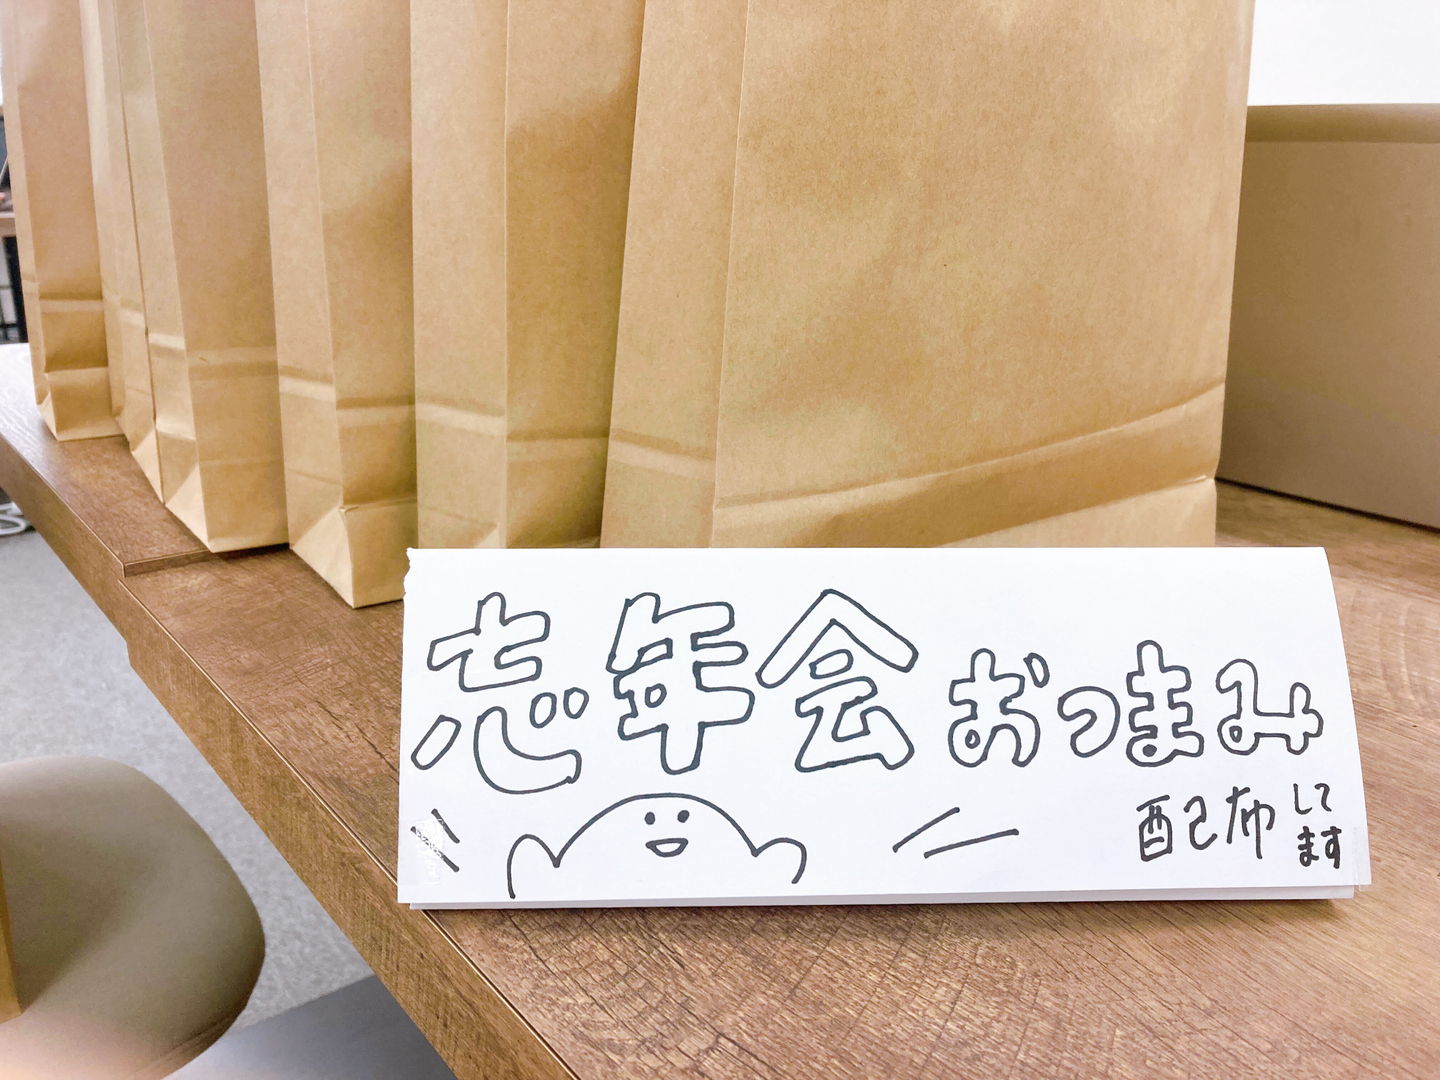 忘年会おつまみ
配布して
ます